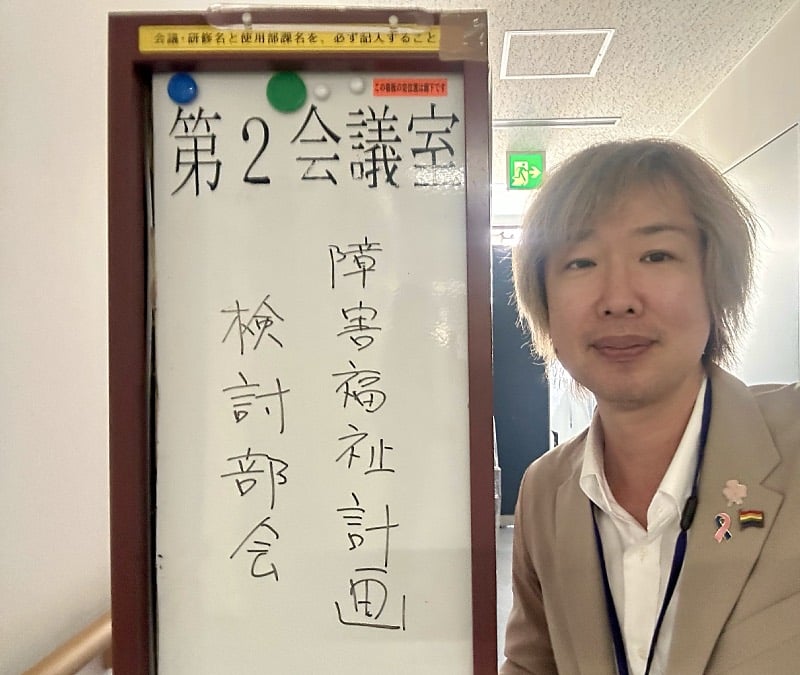 会議・研修名と使用部課名を、必ず記入すること
この看板の定位置は廊下です
第2会議室
障害福祉計画
検討部会